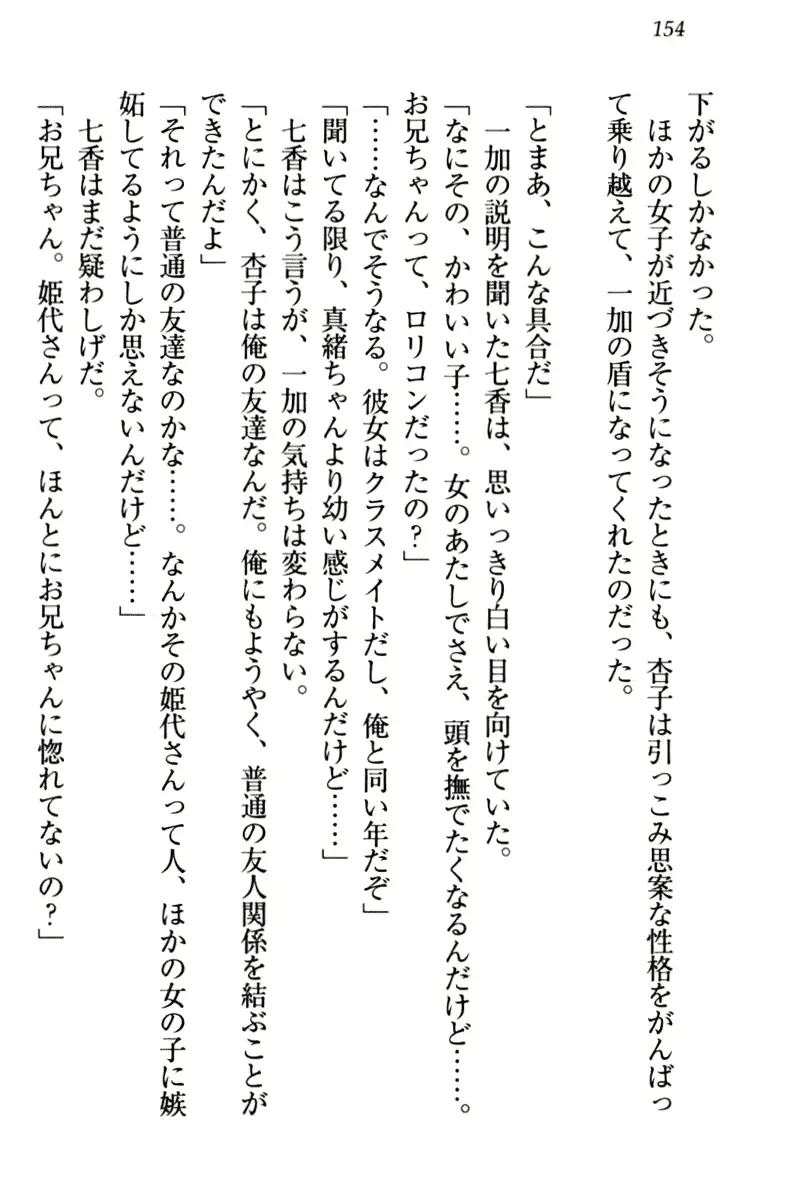 154
下がるしかなかった。
　ほかの女子が近づきそうになったときにも、杏子は引っこみ思案な性格をがんばっ
て乗り越えて、一加の盾になってくれたのだった。
「とまあ、こんな具合だ」
　一加の説明を聞いた七香は、思いっきり白い目を向けていた。
「なにその、かわいい子……。女のあたしでさえ、頭を撫でたくなるんだけど……。
お兄ちゃんって、ロリコンだったの？」
「……なんでそうなる。彼女はクラスメイトだし、俺と同い年だぞ」
「聞いてる限り、真緒ちゃんより幼い感じがするんだけど……」
　七香はこう言うが、一加の気持ちは変わらない。
「とにかく、杏子は俺の友達なんだ。俺にもようやく、普通の友人関係を結ぶことが
できたんだよ」
「それって普通の友達なのかな……。なんかその姫代さんって人、ほかの女の子に嫉
妬してるようにしか思えないんだけど……」
　七香はまだ疑わしげだ。
「お兄ちゃん。姫代さんって、ほんとにお兄ちゃんに惚れてないの？」